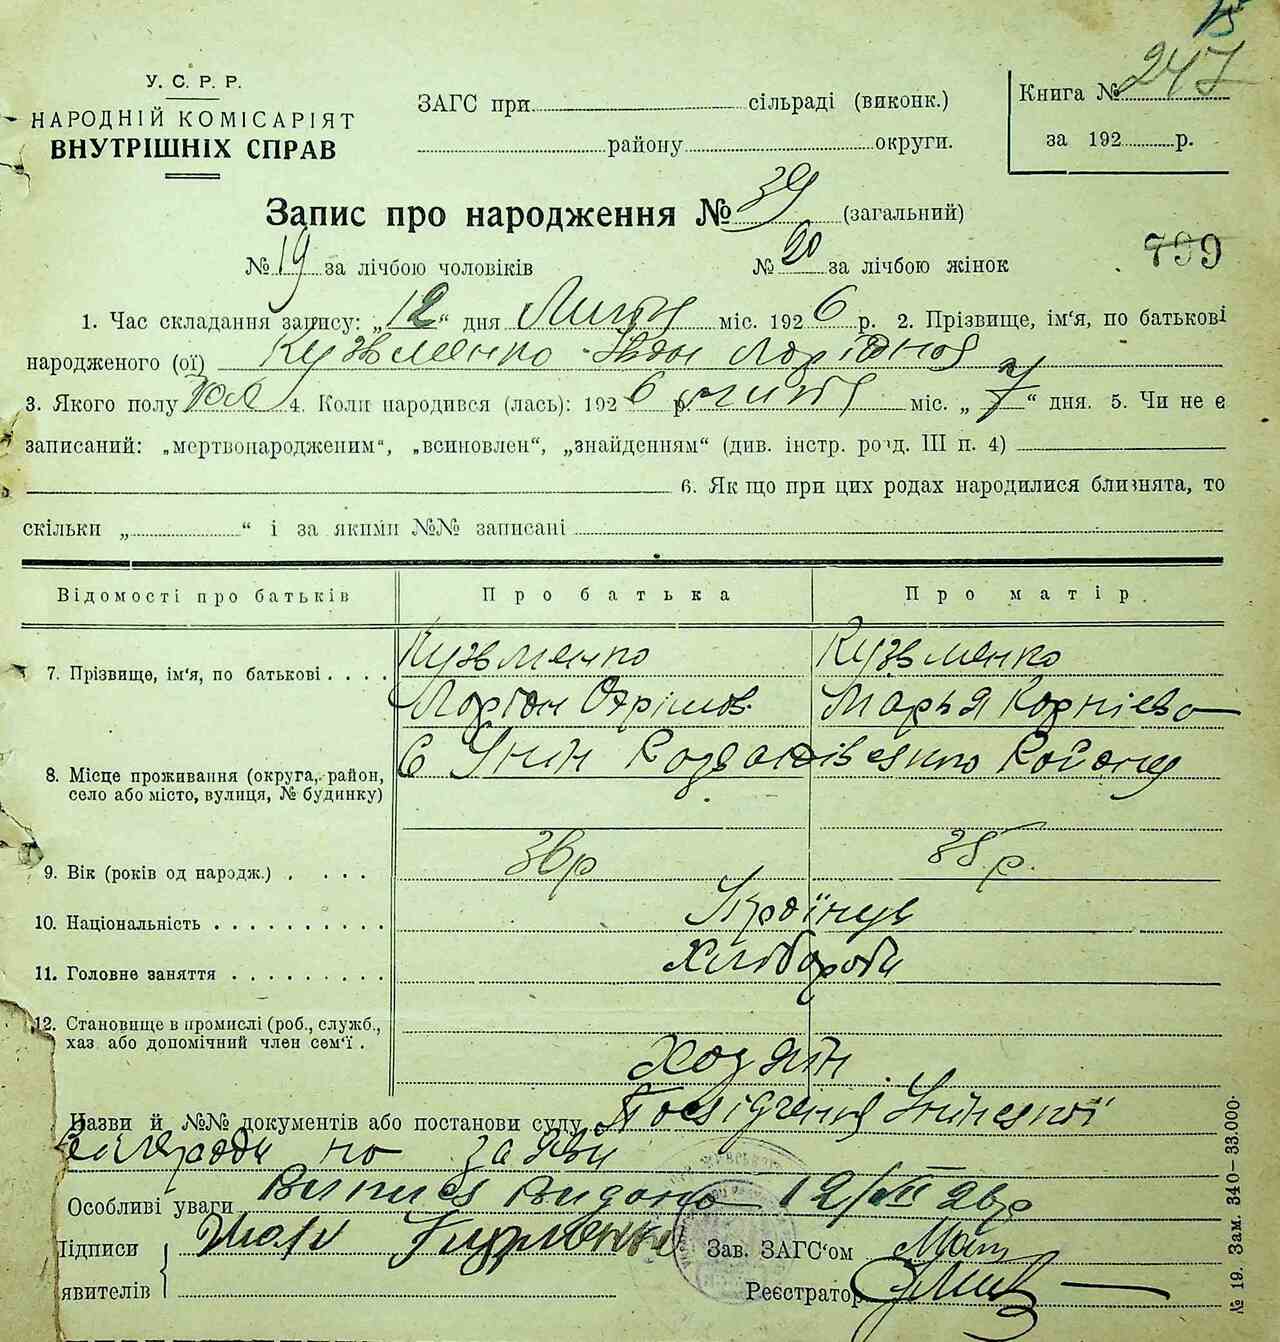 У. С. Р. Р.
НАРОДНІЙ КОМІСАРІЯТ
ВНУТРІШНІХ СПРАВ
ЗАГС при сільраді (виконк.)
району округи.
Книга № 247
за 192 р.
Запис про народження № 39 (загальний)
№ 19 за лічбою чоловіків № 20 за лічбою жінок
799
1. Час складання запису: „12“ дня Липня міс. 1926 р. 2. Прізвище, ім'я, по батькові
народженого (ої) Кузьменко Іван Ларіонов
3. Якого полу Чол 4. Коли народився (лась): 1926 р. липня міс. „7“ дня. 5. Чи не є
записаний: „мертвонародженим“, „всиновлен“, „знайденням“ (див. інстр. розд. III п. 4)
6. Як що при цих родах народилися близнята, то
скільки „ “ і за якими №№ записані
Відомості про батьків Про батька Про матір
7. Прізвище, ім'я, по батькові Кузьменко Кузьменко
Ларіон Охрімов Марья Корнієва
8. Місце проживання (округа, район, село або місто, вулиця, № будинку) С Унін Кодванівського Району
9. Вік (років од народж.) 36 р 38 р.
10. Національність Українців
11. Головне заняття Хлібороби
12. Становище в промислі (роб., служб.,
хаз або допомічний член сем'ї. Хозяїн
Назви й №№ документів або постанови суду Посвідчення Унінської
сільради по заяві
Особливі уваги Випись видана 12/VII 26 р
Підписи
явителів
Зав. ЗАГС'ом
Реєстратор
№ 19. Зам. 340—33.000.